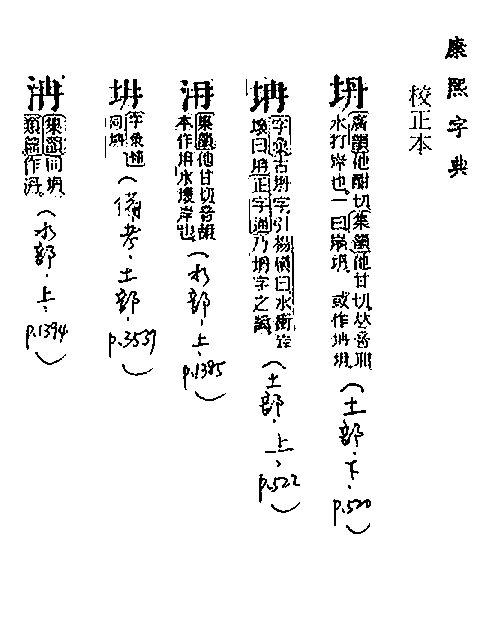 康熙字典
校正本
坍
廣韻他酣切集韻他甘切𠀤音聃
水打岸也一曰崩坍或作坍坍
(土部·上·p.520)
字彙古坍字引楊慎曰水衝岸
壞曰坍正字通乃坍字之譌
(土部·上·p.522)
集韻他甘切音聃
本作坍水壞岸也
(水部·上·p.1385)
字彙補
同坍
(備考·土部·p.3539)
集韻同坍
類篇作
(水部·上·p.1394)